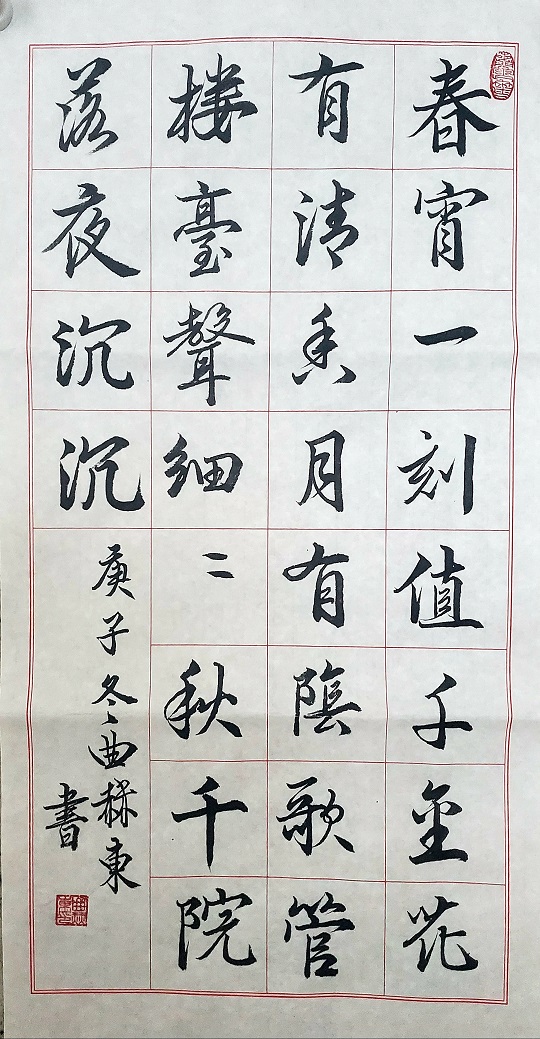 春宵一刻值千金花
有清香月有陰歌管
樓臺聲細〻秋千院
落夜沉沉
庚子冬曲赫東
書